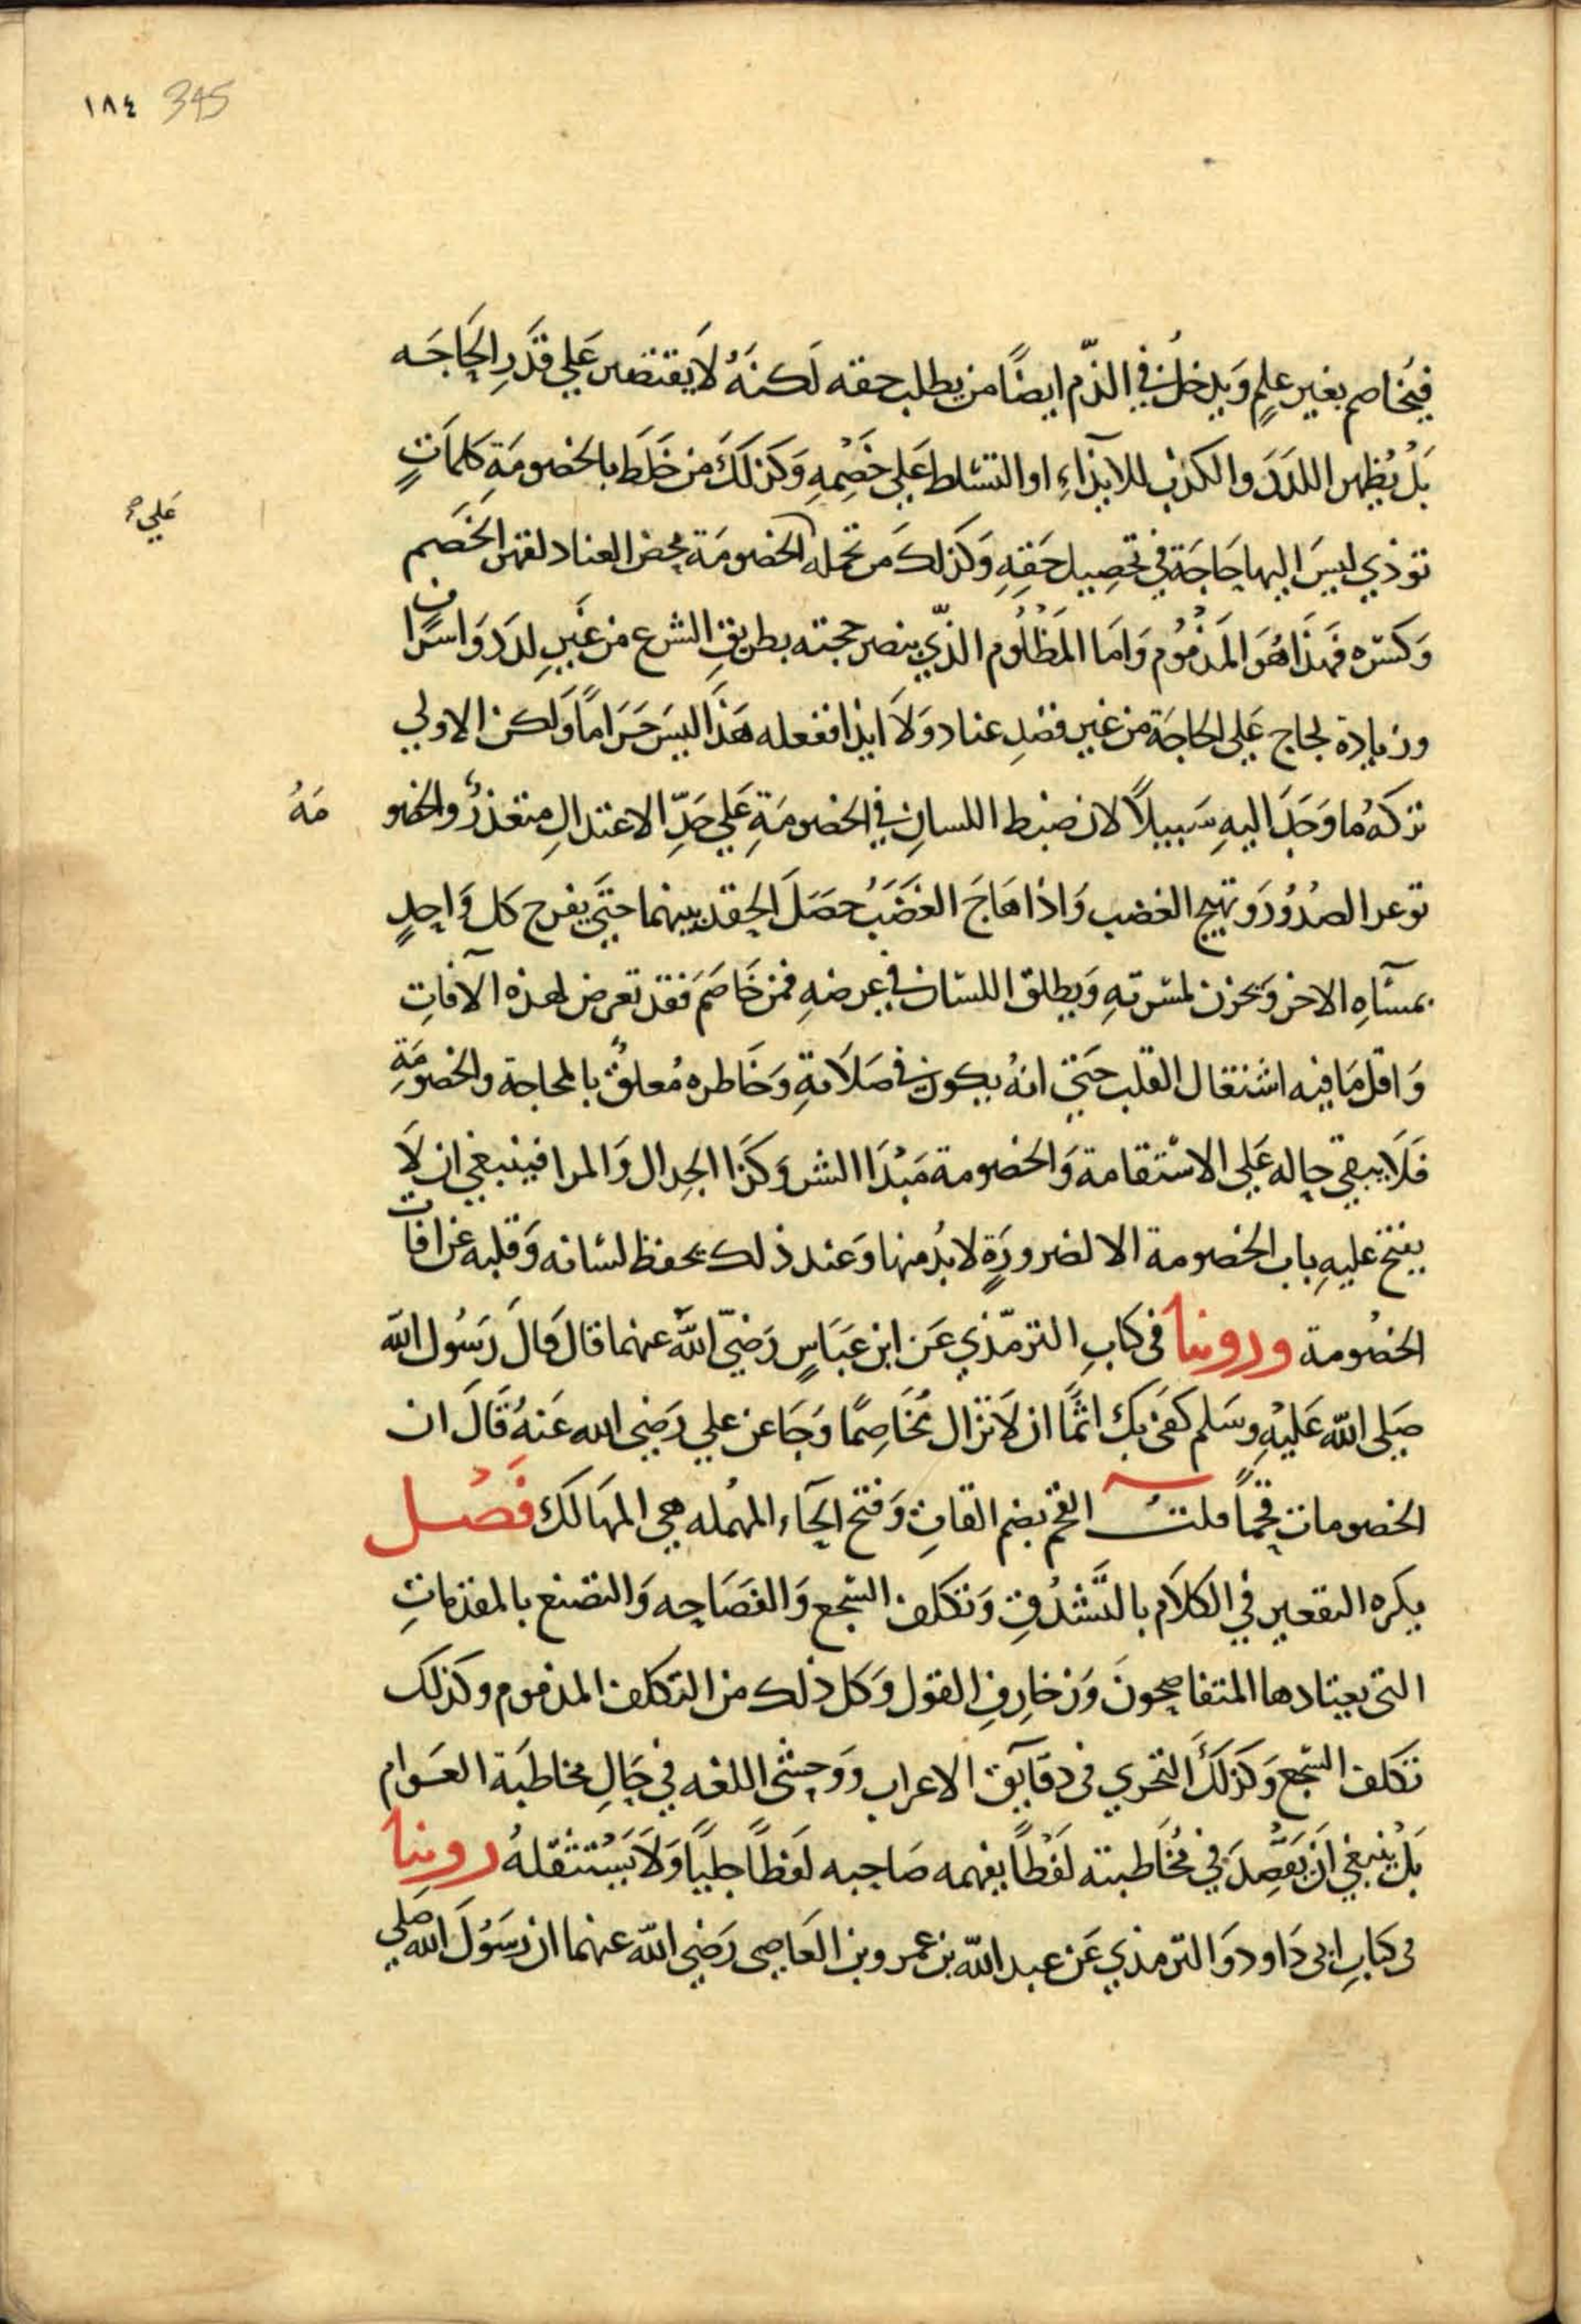 ١٨٤ 345
فيُخاصم بغير علمٍ وَيدخلُ في الذّم ايضًا من يطلب حقه لَكنهُ لَا يقتصر عَلي قدَرِ الحَاجَه
بَلْ يُظهر اللدَدَ والكذب للايذَآءِ او التسَلط عَلي خَصْمِهِ وَكذلكَ من خَلَط بالخصومَةِ كلمَاتٍ
توذي ليسَ اليها حَاجَة في تحصِيل حَقِهِ وَكذلك مَن تحمله الخصومَة محض العناد لقهر الخَصم
عَلي
وَكسره فهَذَا هُوَ المَذمُوم وَامَا المَظلُوم الذّي ينصر حجته بطريقِ الشرع من غَيرِ لدَد وَاسرَاف
وزيادة لجاج عَلي الحاجَة من غير قصدِ عناد وَلَا ايذا ففعله هَذَا ليسَ حَرَامًا وَلكن الاولي
تركهُ ما وَجَدَ اليهِ سَبيلًا لان ضبط اللسانِ في الخصومَةِ عَلي حَدِّ الاعتدالِ متعذرٌ والخصو مَهُ
توغر الصُدُورَ وَتهيج الغضب وَاذا هَاجَ الغَضَبُ حصَلَ الحِقد بينهما حَتيَ يفرح كل وَاحدٍ
بمسَآهِ الاخر وَيحزن لمسَرتهِ وَيطلق اللسَان في عِرضهِ فمن خَاصَمَ فقد تعرض لهذه الآفاتِ
وَاقل مَا فيه اشتغال القلب حَتيّ انهُ يكون في صَلَاتهِ وَخَاطره مُعلقٌ بالمحاجة والخصومَةِ
فَلَا يبقي حاله عَلي الاستقامة وَالخصومة مَبْدَا الشر وَكذَا الجِدال وَالمرا فينبغي ان لَا
يفتح عليهِ باب الخصومة الا لضرورَةٍ لابُد منها وَعند ذلك يحفظ لسَانه وَقلبه عَن افَات
الخصُومة وروينا في كتابِ الترمّذي عَن ابن عَبَاسٍ رَضيّ اللهُ عنهما قال قالَ رَسُول الله
صَلي الله عَليْهِ وسَلم كفَى بكَ اثمًا ان لَا تزال مُخَاصِمًا وَجَا عن علي رَضي الله عَنهُ قَالَ ان
الخصومات قحمًا قلتُ القحم بضم القافِ وَفتح الحَآء المهُمله هي المهَالكَ فَصْل
يكره التقعير في الكلَام بالتَّشَدُقِ وَتكلف السَجع وَالفَصَاحِه وَالتصنع بالمقدمَاتِ
التي يعتادها المتفاصحونَ وَزخارِفِ القول وَكل ذلك من التكلف المذموم وكذلك
تكلف السَجع وَكذلكَ التحري في دقَآيق الاعراب ووَحشي اللغه في حَالِ مخاطبَة العَوام
بَلْ ينبغي اَن يَقصِدَ في مُخَاطبته لَفْظًا يفهمه صَاحبه لفظًا جليًا وَلَا يَسْتثقلهُ روينا
في كتابِ ابي دَاود وَالترمذي عَن عبد الله بن عمرو بن العَاصِي رَضي الله عنهما ان رَسُولَ الله صَلي